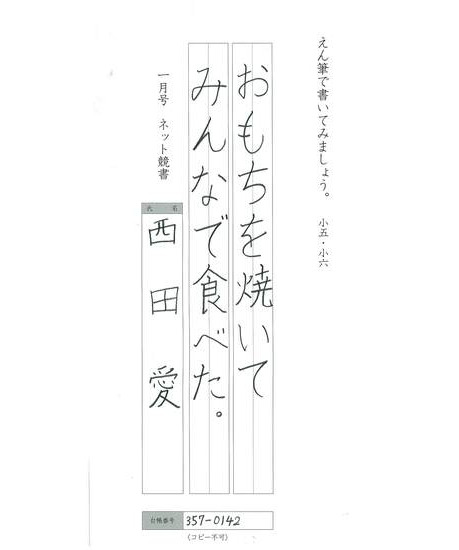 えん筆で書いてみましょう。 小五・小六
おもちを焼いて
みんなで食べた。
一月号 ネット競書
氏名
西田 愛
台帳番号 357-0142
(コピー不可)